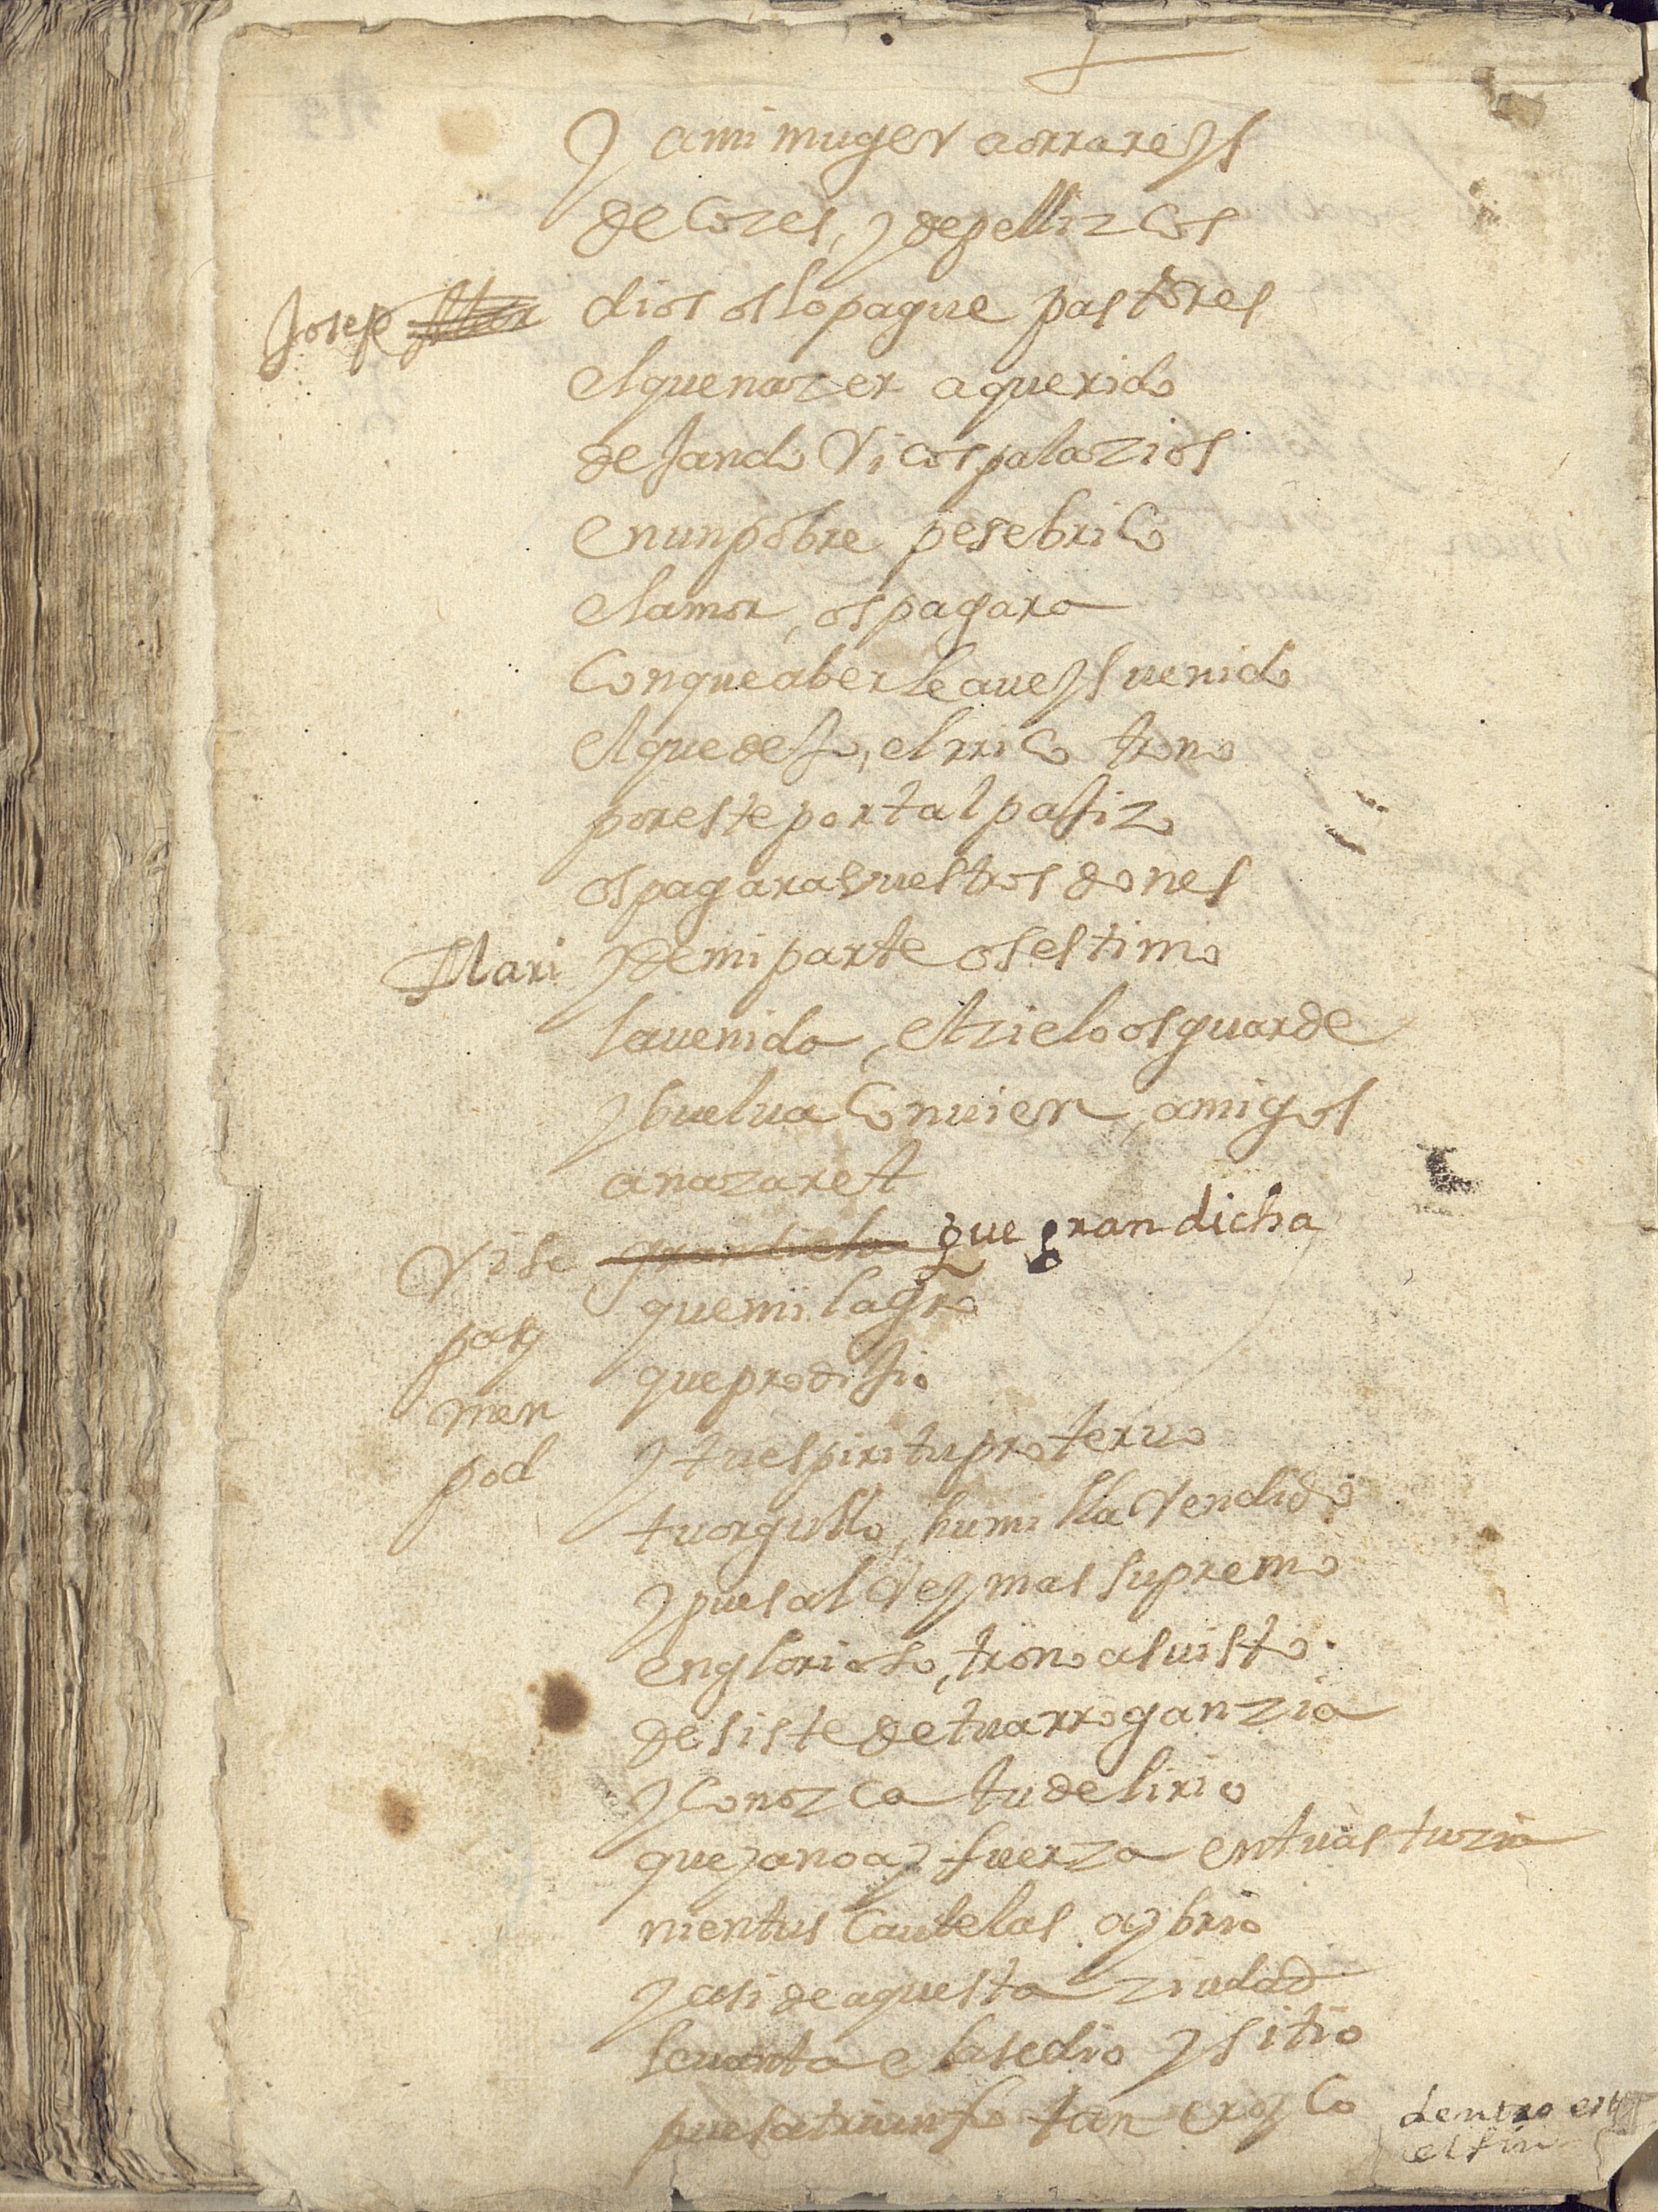 y ami muger aorrareys
de cozes, y depellizcos
Josep dios oslopague pastores
elquenazer aquerido
dejando Ricos palazios
enunpobre pesebrico
elamor, ospagara
conqueaberle aueys uenido
elquedejo, elrrico trono
poresteportal pajizo
ospagara vuestros dones
Mari ydemiparte osestimo
lauenida, elzielo osguarde
ybuelua conuien, amigos
anazaret
Rise gran dicha que gran dicha
pas quemilagro
men queprodijio
pod ytuespirituproteruo
tuorgullo, humilla Rendido
ypues al Rey mas supremo
englorioso, trono asuisto
desiste detuarroganzia
yconozca tudelirio
queyanoay fuerza entuastuzia
nientus cautelas ay brio
yasi deaquesta ziudad
leuanta elasedio ysitio
puesatriunfo tan eroyco
dentro en
el fin